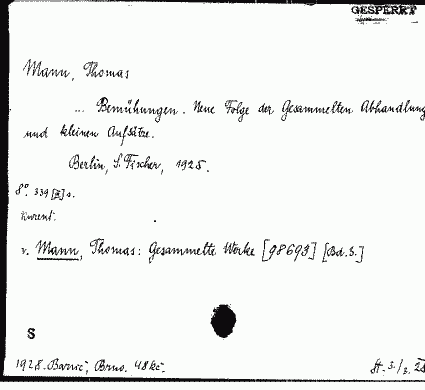 GESPERRT
Mann, Thomas
... Bemühungen. Neue Folge der Gesammelten Abhandlung
und kleinen Aufsätze.
Berlin, S. Fischer, 1925.
8°. 339 [II] s.
Kurent.
v. Mann, Thomas: Gesammelte Werke [98693] [Bd. 3.]
S
1928. Barvič, Brno. 48 kč.
3./3. 28